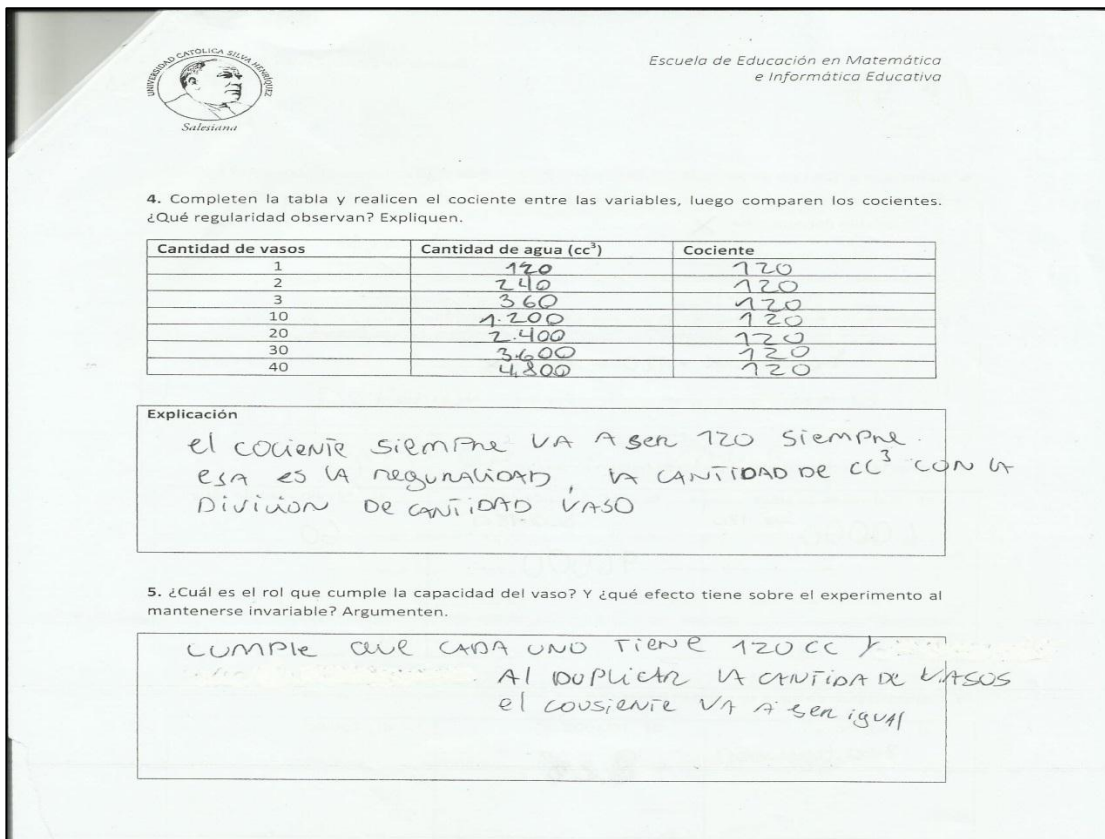 UNIVERSIDAD CATÓLICA SILVA HENRÍQUEZ
Salesiana
Escuela de Educación en Matemática
e Informática Educativa
4. Completen la tabla y realicen el cociente entre las variables, luego comparen los cocientes.
¿Qué regularidad observan? Expliquen.
Cantidad de vasos Cantidad de agua (cc³) Cociente
1 120 120
2 240 120
3 360 120
10 1.200 120
20 2.400 120
30 3.600 120
40 4.800 120
Explicación
el cociente siempre VA A ser 120 siempre.
esA es LA reguralidad, LA CANTIDAD DE CC³ CON LA
Divicion De cantidad VASO
5. ¿Cuál es el rol que cumple la capacidad del vaso? Y ¿qué efecto tiene sobre el experimento al
mantenerse invariable? Argumenten.
CUMPle que CADA UNO Tiene 120 CC y
Al DUPLicAR LA CANTiDA De VASOS
el cousiente VA A ser igual